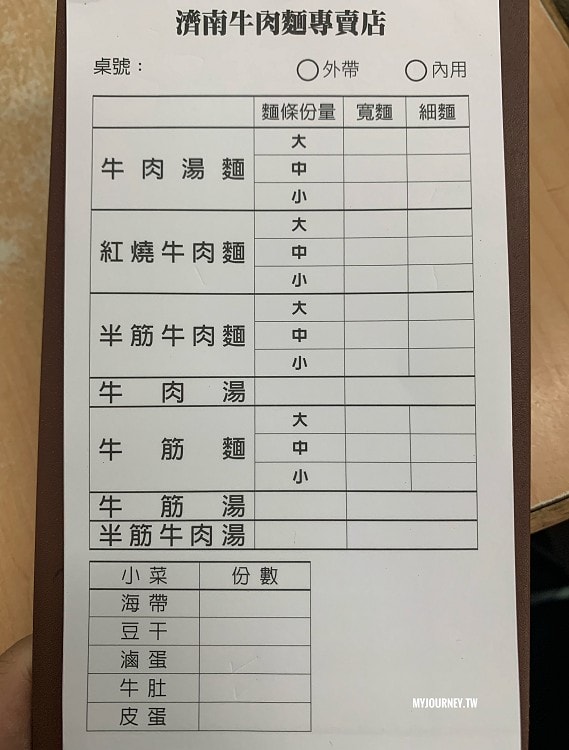 濟南牛肉麵專賣店
桌號： ○外帶 ○內用
麵條份量 寬麵 細麵
牛肉湯麵 大
中
小
紅燒牛肉麵 大
中
小
半筋牛肉麵 大
中
小
牛肉湯
牛筋麵 大
中
小
牛筋湯
半筋牛肉湯
小菜 份數
海帶
豆干
滷蛋
牛肚
皮蛋
MYJOURNEY.TW